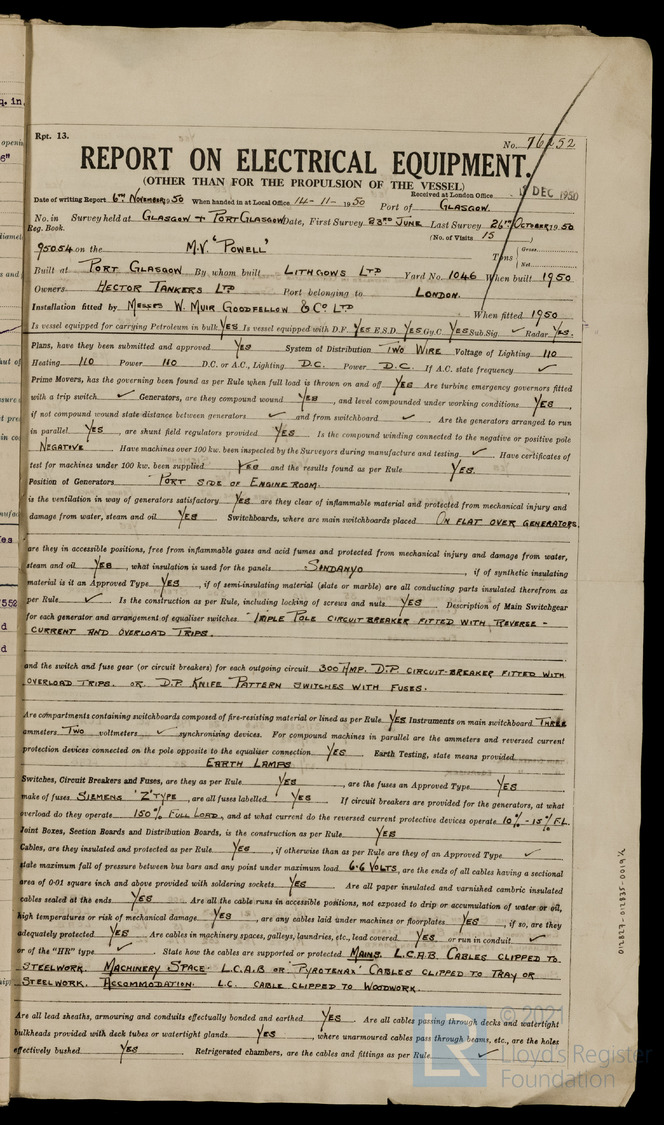 Rpt. 13.
No. 76252
REPORT ON ELECTRICAL EQUIPMENT.
(OTHER THAN FOR THE PROPULSION OF THE VESSEL)
Received at London Office DEC 1950
Date of writing Report 6TH NOVEMBER 1950 When handed in at Local Office 14-11-1950 Port of GLASGOW.
No. in Survey held at GLASGOW & PORT GLASGOW Date, First Survey 23RD JUNE Last Survey 26TH OCTOBER 1950
Reg. Book. (No. of Visits 15
95054 on the M.V. 'POWELL' Tons { Gross Net
Built at PORT GLASGOW By whom built LITHGOWS LTD Yard No. 1046 When built 1950
Owners HECTOR TANKERS LTD Port belonging to LONDON.
Installation fitted by MESSRS W. MUIR GOODFELLOW & CO LTD When fitted 1950
Is vessel equipped for carrying Petroleum in bulk YES Is vessel equipped with D.F. YES E.S.D. YES Gy.C. YES Sub.Sig. ✓ Radar YES.
Plans, have they been submitted and approved YES System of Distribution TWO WIRE Voltage of Lighting 110
Heating 110 Power 110 D.C. or A.C., Lighting D.C. Power D.C. If A.C. state frequency ✓
Prime Movers, has the governing been found as per Rule when full load is thrown on and off YES Are turbine emergency governors fitted
with a trip switch ✓ Generators, are they compound wound YES, and level compounded under working conditions YES,
if not compound wound state distance between generators ✓ and from switchboard ✓. Are the generators arranged to run
in parallel YES, are shunt field regulators provided YES Is the compound winding connected to the negative or positive pole
NEGATIVE. Have machines over 100 kw. been inspected by the Surveyors during manufacture and testing ✓ Have certificates of
test for machines under 100 kw. been supplied YES and the results found as per Rule YES.
Position of Generators PORT SIDE OF ENGINE ROOM.
is the ventilation in way of generators satisfactory YES are they clear of inflammable material and protected from mechanical injury and
damage from water, steam and oil YES Switchboards, where are main switchboards placed ON FLAT OVER GENERATORS.
are they in accessible positions, free from inflammable gases and acid fumes and protected from mechanical injury and damage from water,
steam and oil YES, what insulation is used for the panels SINDANYO, if of synthetic insulating
material is it an Approved Type YES, if of semi-insulating material (slate or marble) are all conducting parts insulated therefrom as
per Rule ✓ Is the construction as per Rule, including locking of screws and nuts YES Description of Main Switchgear
for each generator and arrangement of equaliser switches TRIPLE POLE CIRCUIT BREAKER FITTED WITH REVERSE-
CURRENT AND OVERLOAD TRIPS.
and the switch and fuse gear (or circuit breakers) for each outgoing circuit 300 AMP. D.P. CIRCUIT-BREAKER FITTED WITH
OVERLOAD TRIPS. OR D.P. KNIFE PATTERN SWITCHES WITH FUSES.
Are compartments containing switchboards composed of fire-resisting material or lined as per Rule YES Instruments on main switchboard THREE
ammeters TWO voltmeters ✓ synchronising devices. For compound machines in parallel are the ammeters and reversed current
protection devices connected on the pole opposite to the equaliser connection YES Earth Testing, state means provided
EARTH LAMPS
Switches, Circuit Breakers and Fuses, are they as per Rule YES, are the fuses an Approved Type YES
make of fuses SIEMENS 'Z' TYPE, are all fuses labelled YES If circuit breakers are provided for the generators, at what
overload do they operate 150% FULL LOAD, and at what current do the reversed current protective devices operate 10% - 15% F.L.
Joint Boxes, Section Boards and Distribution Boards, is the construction as per Rule YES
Cables, are they insulated and protected as per Rule YES, if otherwise than as per Rule are they of an Approved Type ✓
state maximum fall of pressure between bus bars and any point under maximum load 6.6 VOLTS, are the ends of all cables having a sectional
area of 0·01 square inch and above provided with soldering sockets YES Are all paper insulated and varnished cambric insulated
cables sealed at the ends YES Are all the cable runs in accessible positions, not exposed to drip or accumulation of water or oil,
high temperatures or risk of mechanical damage YES, are any cables laid under machines or floorplates YES, if so, are they
adequately protected YES Are cables in machinery spaces, galleys, laundries, etc., lead covered YES or run in conduit ✓
or of the "HR" type ✓ State how the cables are supported or protected MAINS. L.C.A.B. CABLES CLIPPED TO
STEELWORK. MACHINERY SPACE. L.C.A.B OR 'PYROTENAX' CABLES CLIPPED TO TRAY OR
STEELWORK. ACCOMMODATION. L.C. CABLE CLIPPED TO WOODWORK.
Are all lead sheaths, armouring and conduits effectually bonded and earthed YES Are all cables passing through decks and watertight
bulkheads provided with deck tubes or watertight glands YES, where unarmoured cables pass through beams, etc., are the holes
effectively bushed YES Refrigerated chambers, are the cables and fittings as per Rule ✓
012827-012835-0019 ½
© 2021
LR Lloyd's Register
Foundation